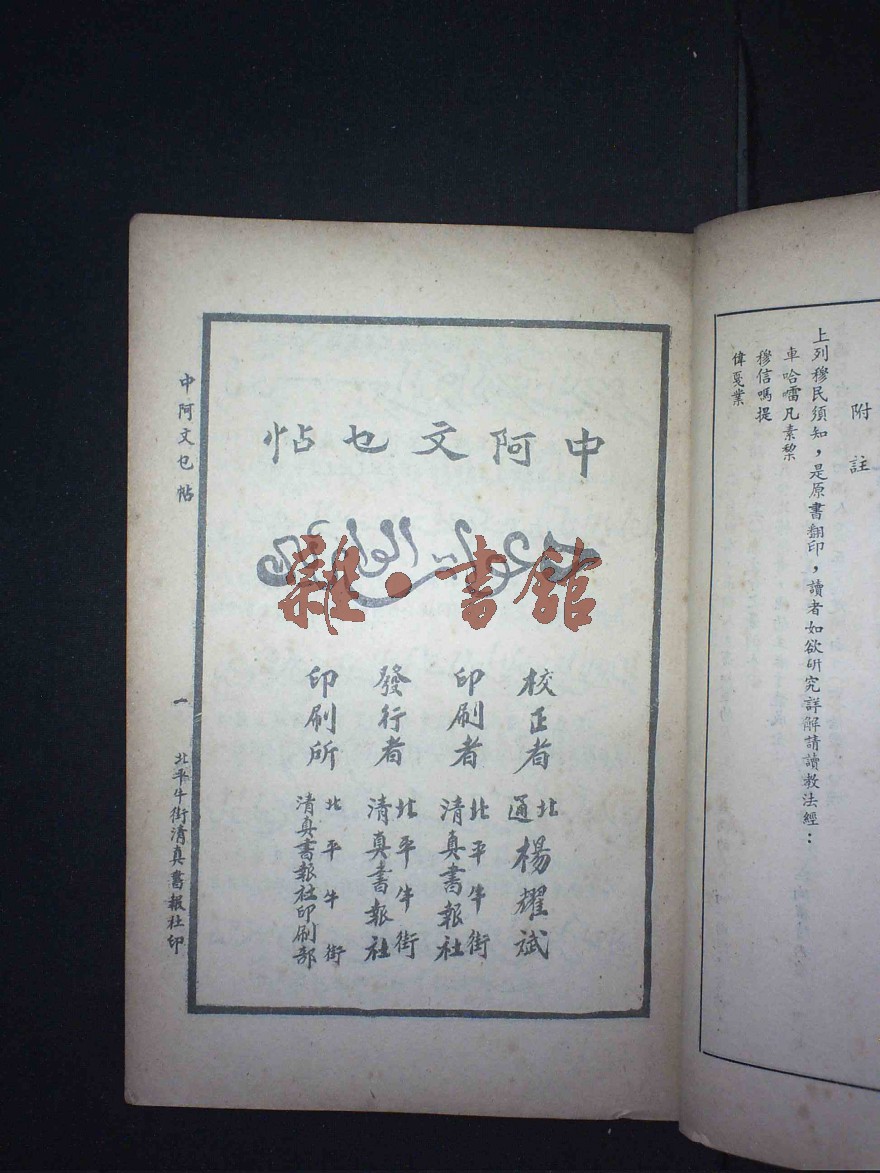 附註
上列穆民須知，是原書翻印，讀者如欲研究詳解請讀教法經：
車哈㗲凡素黎
穆信嗎提
偉戛業
中阿文乜帖
雜·書館
校正者 北通 楊耀斌
印刷者 北平牛街 清真書報社
發行者 北平牛街 清真書報社
印刷所 北平牛街 清真書報社印刷部
中阿文乜帖
一
北平牛街清真書報社印